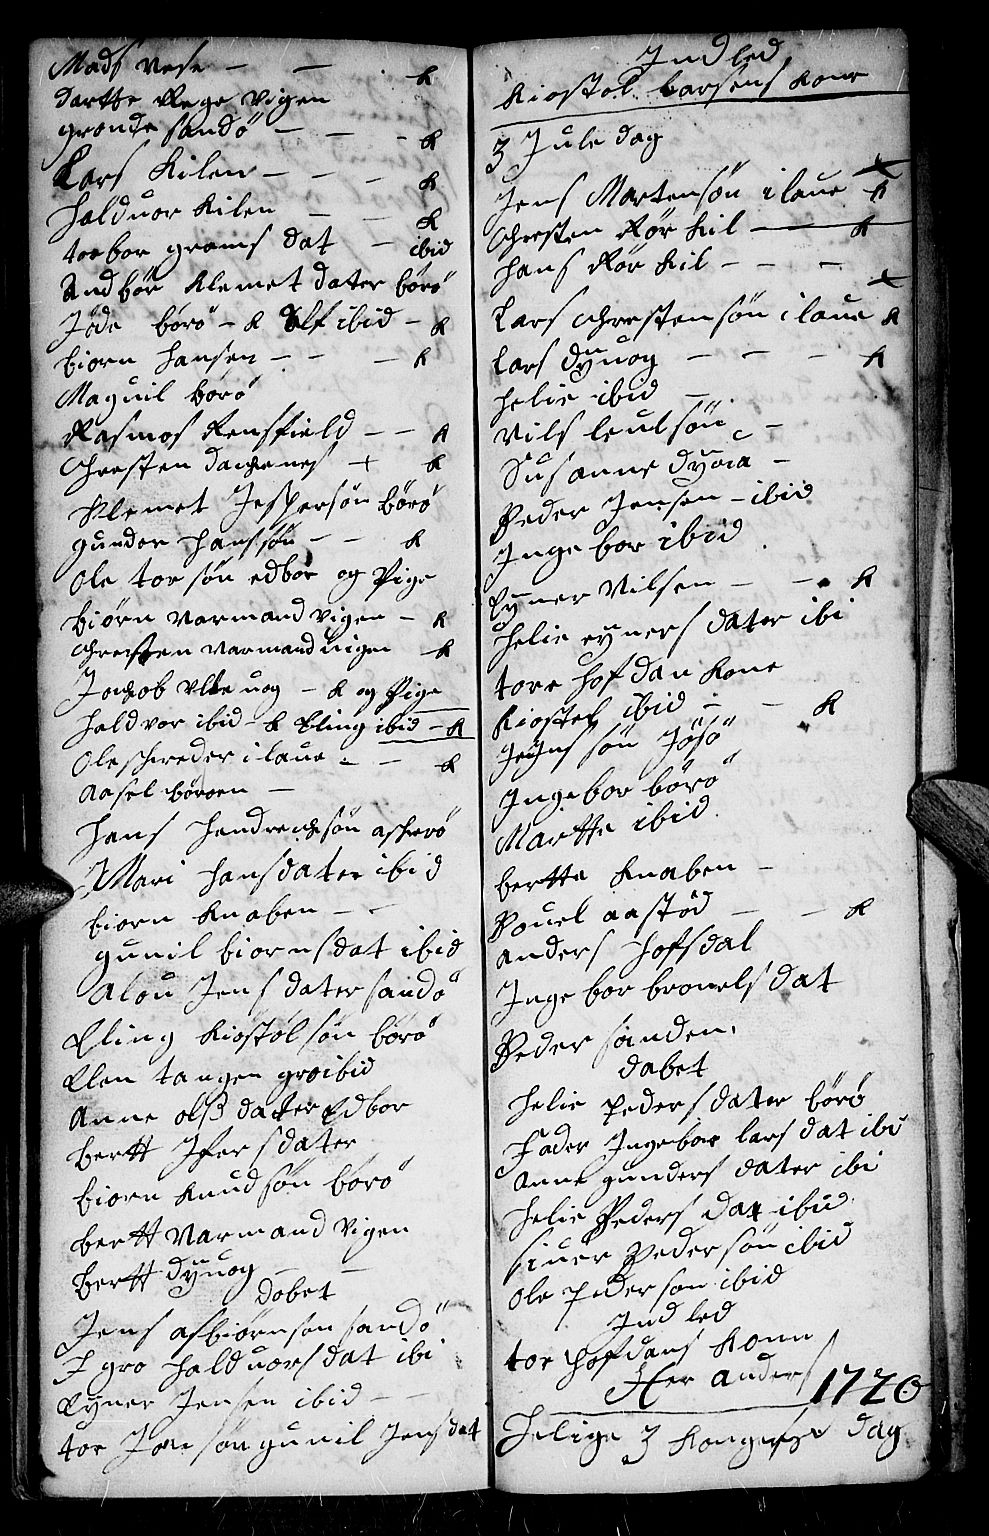 Mads Vese - - K
dortte Rege Vigen
gronde sandö - - - K
Lars Kilen - - - K
Haldvor Kilen - - K
torbor groms dat - ibid
Andbör Klemet dater börö
Jöde börö - K Elf ibid - K
biorn Hansen - - - K
Magnil börö
Rasmos Rensfield - - K
Chresten dachenes + K
Klemet Jespersön börö
gunder Hanssön - - K
Ole tor sön edbor og Pige
biörn Varmand vigen - K
Chresten Varmand vigen - K
Jachob Ulle uog - K og Pige
Haldvor ibid - K Eling ibid - K
Ole schreder i laue - - K
Aasel böroen -
Hans Hendrechsön askerö
Mari Hansdater ibid
biorn Knaben - -
gunil biornsdat ibid
Alou Jens dater sandö
Eling Kiostölsön börö
Elen tangen gro ibid
Anne olss dater Edbor
bertt Ifersdater
biorn Knudsön börö
bertt Varmand Vigen
bertt dynog - -
döbet
Jens asbiörnsön sandö
F gro Halduors dat ibi
Eyner Jensen ibid - -
tor Jörensön gunil Jensdat
Indled
Kiostöl Larsens Kone
3 Jule dag
Jens Martensön i laue K
Chresten Rör Kil - - K
Hans Rör Kil - - -
Lars Chrestensön i laue K
Lars dynog - - - K
Helie ibid -
Nils leulsön -
Susanne dyvia -
Peder Jensen - ibid
Ingebor ibid
Eyner Nilsen - - K
Helie eyners dater ibi
tore Hofdan Kone
Kiostel ibid - - K
Jens sön Jösö
Ingebor börö
Martte ibid
bertte Knaben -
Pouel aastöd - - K
Anders Hofsdal
Ingebor bronels dat
Peder sanden
dabet
Helie peders dater börö
Fader Ingebor lars dat ibi
Anne gunders dater ibi
Helie Peders dat ibid
siuer Pedersön ibid
Ole pedersön ibid
Ind led
tor Hofdans Konn
Her Anders 1720
Helige 3 Kongers dag